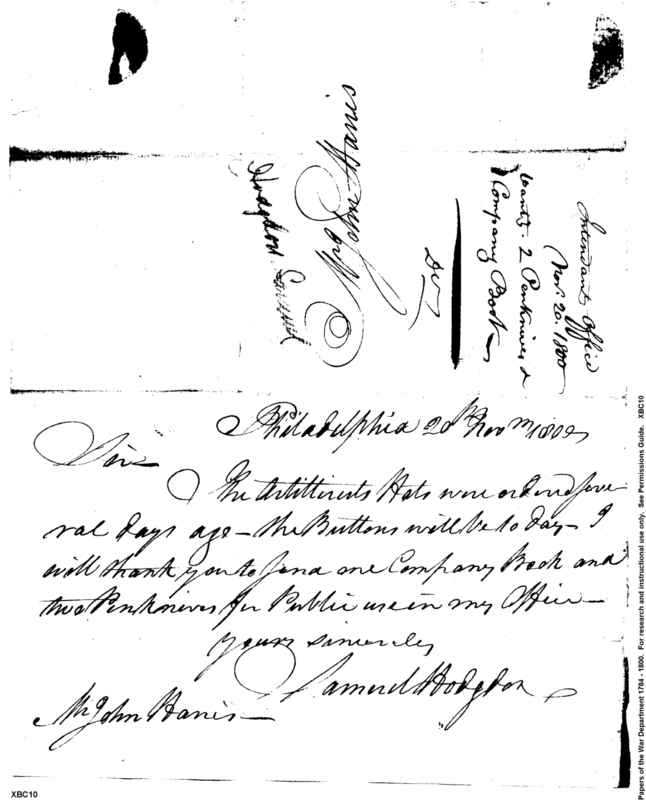 Intendants Office
Nov. 20. 1800
wants. 2 Penknives &
1 Company Book
Mr John Harris
Hodgdon Samuel
Philadelphia 20th Novm 1800
Sir
The Artillerists Hats were ordered seve
ral days ago - the Buttons will be to day - I
will thank you to send me Company Book and
two Penknives for Public use in my Office -
yours sincerely
Samuel Hodgdon
Mr John Harris
XBC10
Papers of the War Department 1784 - 1800. For research and instructional use only. See Permissions Guide. XBC10